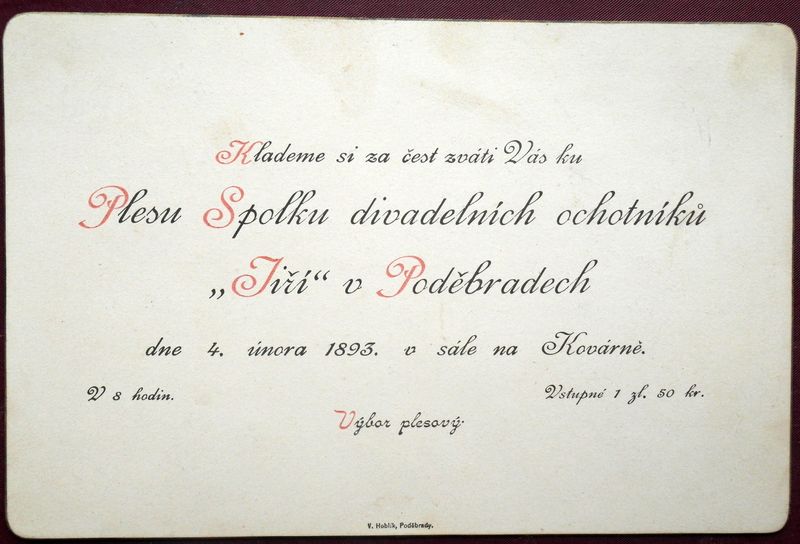 Klademe si za čest zváti Vás ku
Plesu Spolku divadelních ochotníků
„Jiří“ v Poděbradech
dne 4. února 1893. v sále na Kovárně.
V 8 hodin. Vstupné 1 zl. 50 kr.
Výbor plesový.
V. Hoblík, Poděbrady.